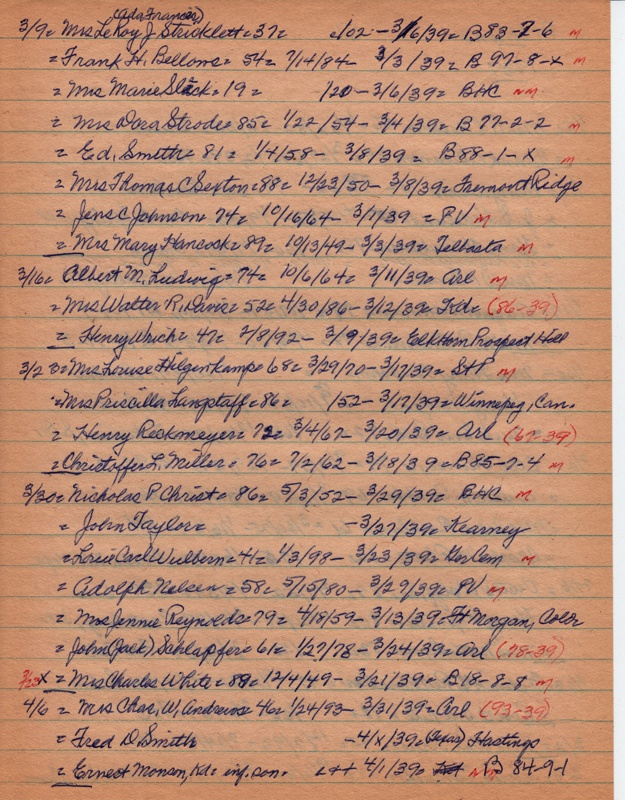 (Ada Frances)
3/9= Mrs LeRoy J Stricklett= 37= /02 - 3/6/39= B 83-7-6 M
= Frank H. Bellows= 54= 7/14/84- 3/3/39= B 97-8-X M
= Mrs Marie Slack= 19= /20- 3/6/39= BHC NM
= Mrs Dora Strode= 85= 1/22/54- 3/4/39= B 77-2-2 M
= Ed. Smith= 81= 1/4/58- 3/8/39= B88-1-X M
= Mrs Thomas C Sexton= 88= 12/23/50- 3/8/39= Fremont Ridge
= Jens C Johnson= 74= 10/16/64- 3/7/39= PV M
= Mrs Mary Hancock= 89= 10/13/49- 3/3/39= Telbasta M
3/16= Albert M. Ludwig= 74= 10/6/64= 3/11/39= Arl M
= Mrs Walter R. Davis= 52= 4/30/86- 3/12/39= Kd= (86-39)
= Henry Wrich= 47= 2/8/92- 3/9/39= Elk Horn Prospect Hill
3/23= Mrs Louise Hilgenkamp= 68= 3/29/70- 3/17/39= StP M
= Mrs Priscilla Langstaff= 86= /52- 3/17/39= Winnepeg, Can.
= Henry Reckmeyer= 72= 3/4/67- 3/20/39= Arl (67-39)
= Christoffer L. Miller= 76= 7/2/62- 3/18/39= B85-7-4 M
3/30= Nicholas P Christ= 86= 5/3/52- 3/29/39= BHC M
= John Taylor= -3/27/39= Kearney
= Carl Wulbern= 41= 1/3/98- 3/23/39= Ger Cem M
= Adolph Nelsen= 58= 5/15/80- 3/29/39= PV M
= Mrs Jennie Reynolds= 79= 4/18/59- 3/13/39= Ft Morgan, Color
= John (Jack) Schlapfer= 61= 1/27/78- 3/24/39= Arl (78-39)
3/23X = Mrs Charles White= 89= 12/4/49- 3/21/39= B18-8-8 M
4/6 = Mrs Chas. W. Andrews= 46= 1/24/93- 3/31/39= Arl (93-39)
= Fred D Smith -4/X/39= (Texas) Hastings
= Ernest Monson, Kd= inf. son. 4/1/39= B 84-9-1